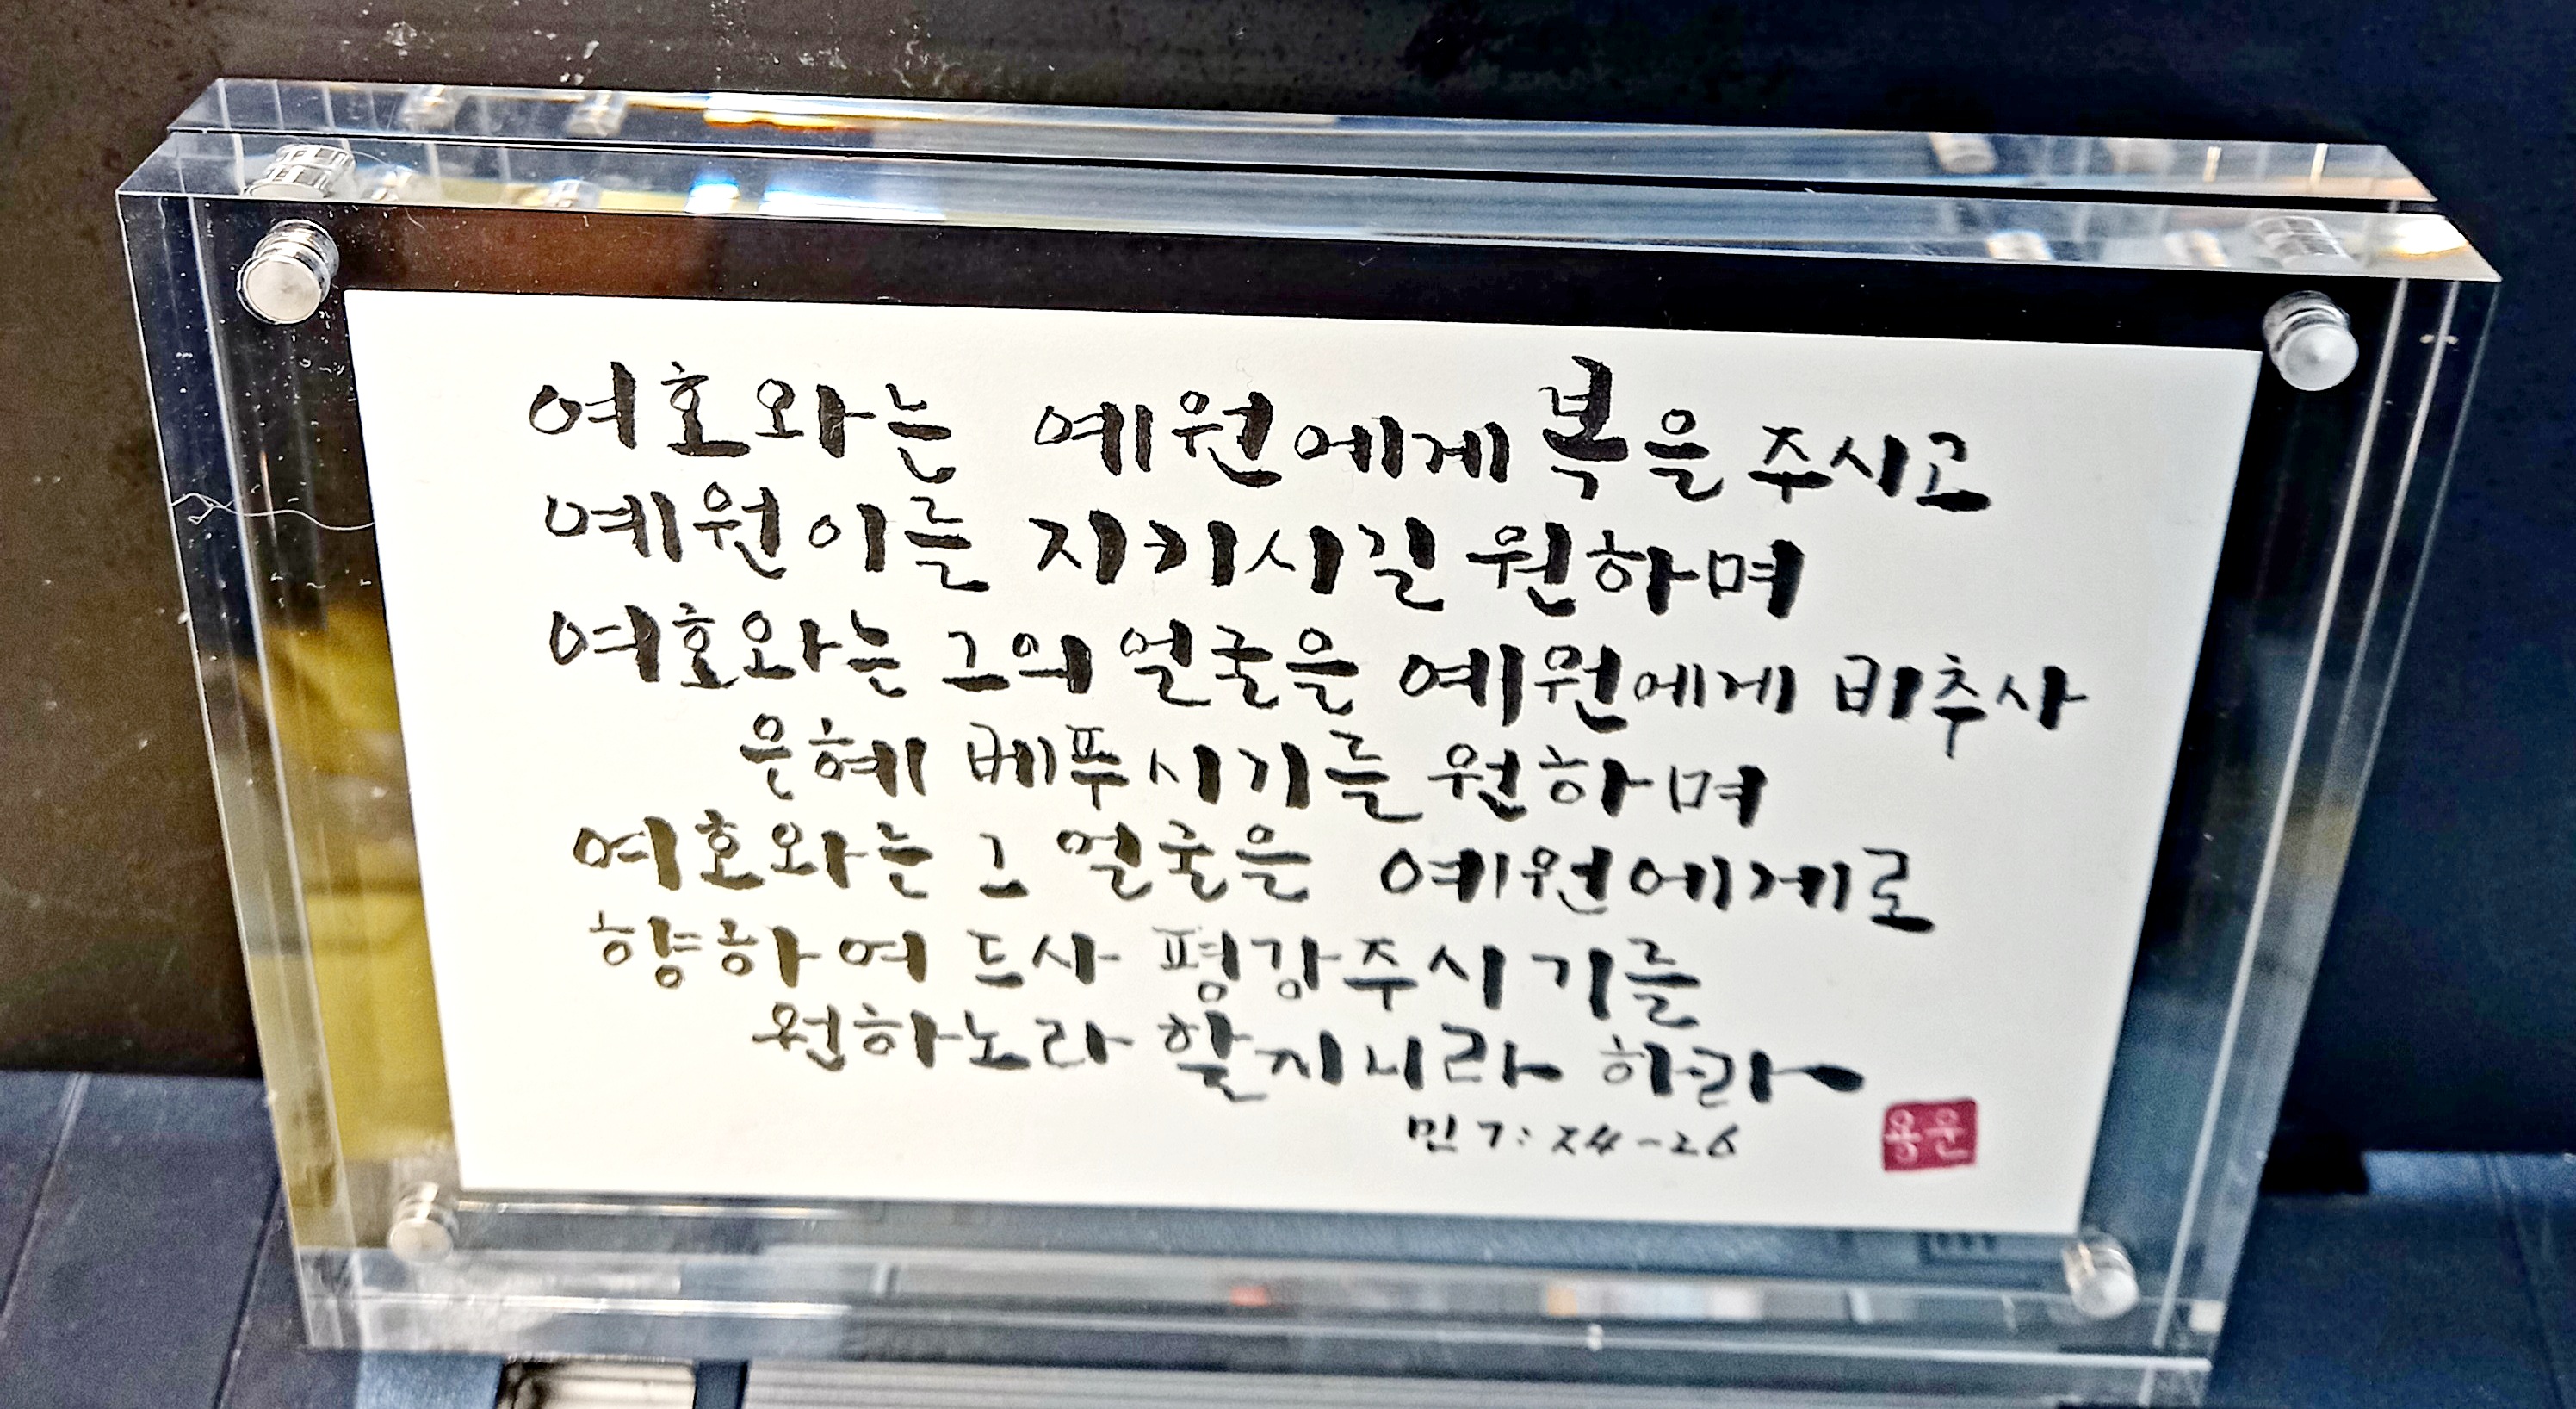 여호와는 예원에게 복을 주시고
예원이를 지키시길 원하며
여호와는 그의 얼굴을 예원에게 비추사
은혜 베푸시기를 원하며
여호와는 그 얼굴을 예원에게로
향하여 드사 평강주시기를
원하노라 할지니라 하라
민 7:24-26
용운